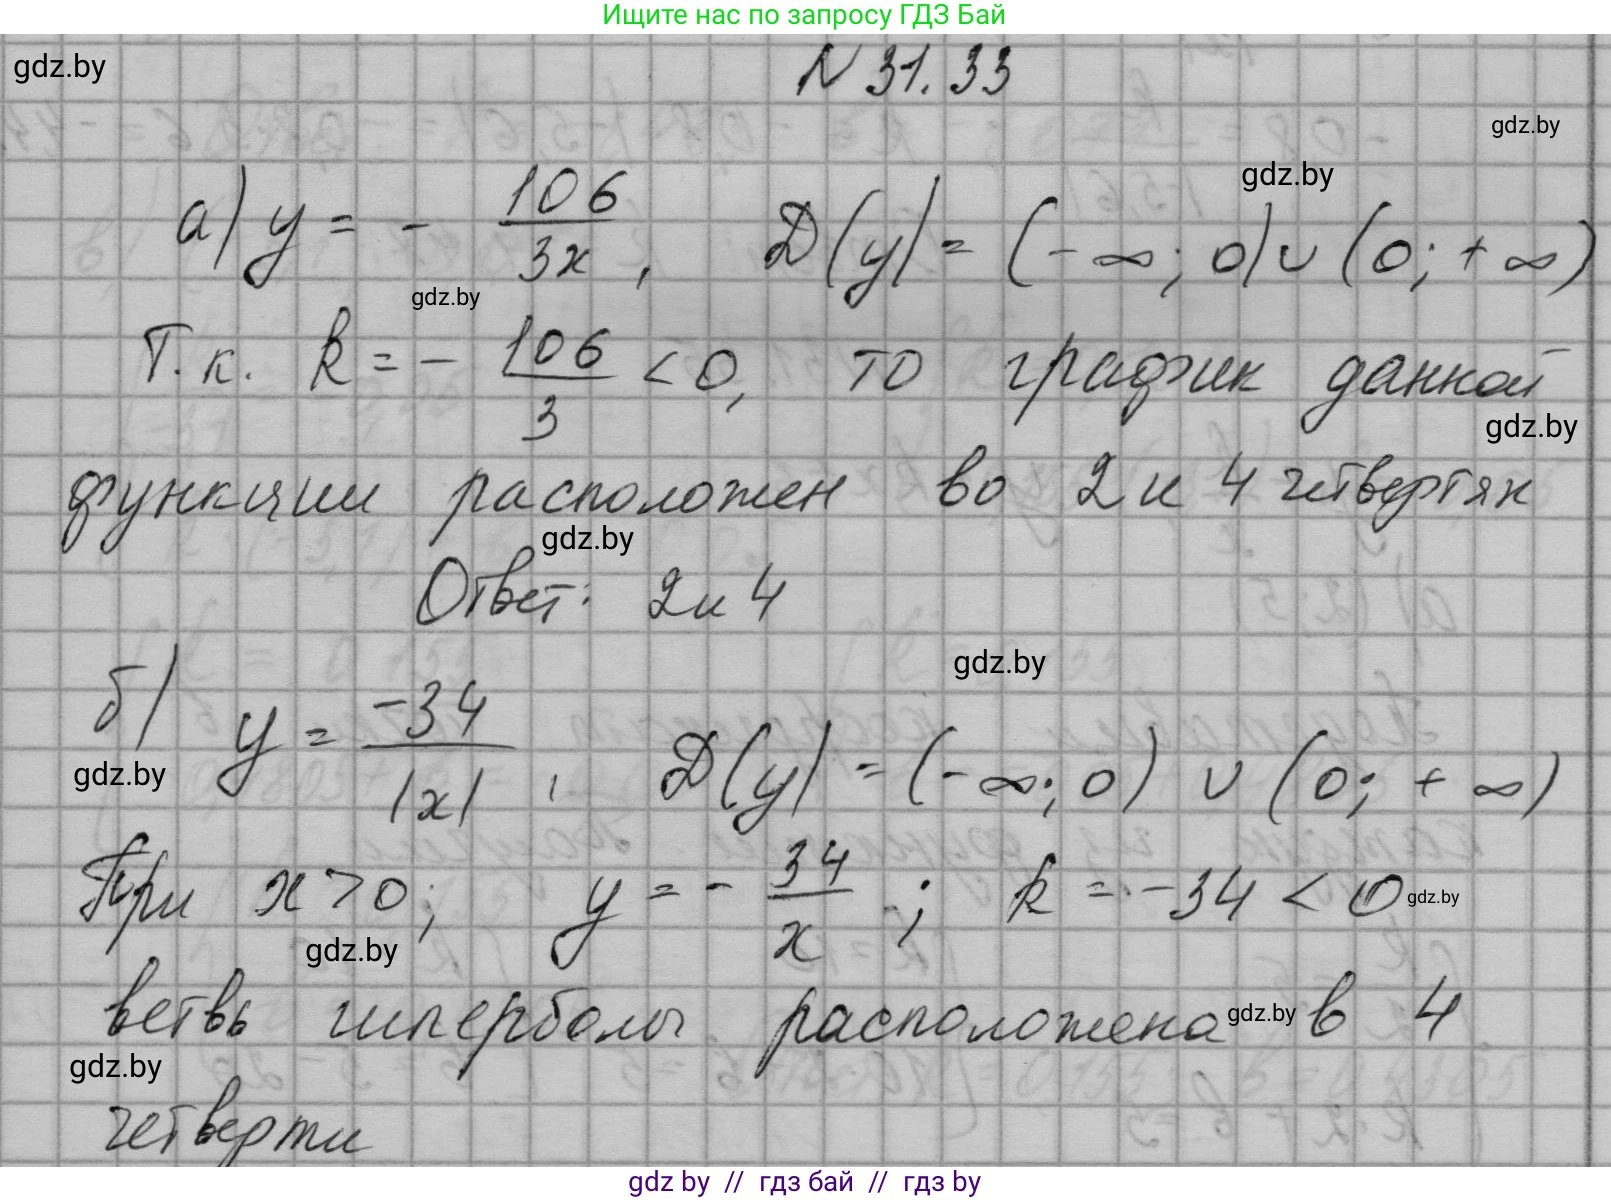 Ищите нас по запросу ГДЗ Бай
gdz.by
N 31.33
gdz.by
gdz.by
а) y = - 106/3x , D(y) = (-∞; 0) ∪ (0; +∞)
gdz.by
Т.к. k = - 106/3 < 0, то график данной
gdz.by
функции расположен во 2 и 4 четвертях
gdz.by
Ответ: 2 и 4
gdz.by
б) y = -34/|x| , D(y) = (-∞; 0) ∪ (0; +∞)
gdz.by
При x > 0; y = - 34/x ; k = -34 < 0
gdz.by
gdz.by
ветвь гиперболы расположена в 4
gdz.by
gdz.by
четверти
gdz.by // гдз бай // гдз by